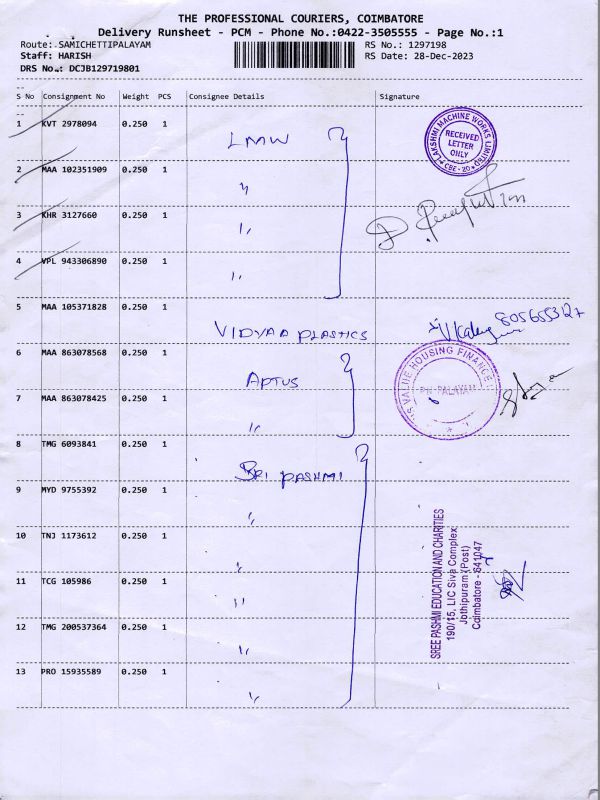 THE PROFESSIONAL COURIERS, COIMBATORE
Delivery Runsheet - PCM - Phone No.:0422-3505555 - Page No.:1
Route: SAMICHETTIPALAYAM
RS No.: 1297198
Staff: HARISH
RS Date: 28-Dec-2023
DRS No.: DCJB129719801
S No Consignment No Weight PCS Consignee Details Signature
1 KVT 2978094 0.250 1 LMW
LAKSHMI MACHINE WORKS LIMITED
RECEIVED
LETTER
ONLY
CBE - 20
2 MAA 102351909 0.250 1 "
3 KHR 3127660 0.250 1 "
4 VPL 943306890 0.250 1 "
5 MAA 105371828 0.250 1 VIDYAA PLASTICS
6 MAA 863078568 0.250 1 APTUS
VALUE HOUSING FINANCE
PN PALAYAM
7 MAA 863078425 0.250 1 "
8 TMG 6093841 0.250 1 SRI PASHMI
9 MYD 9755392 0.250 1 "
10 TNJ 1173612 0.250 1 "
11 TCG 105986 0.250 1 "
12 TMG 200537364 0.250 1 "
13 PRO 15935589 0.250 1 "
SREE PASHMI EDUCATION AND CHARITIES
190/15, LIC Siva Complex
Jothipuram (Post)
Coimbatore - 641047